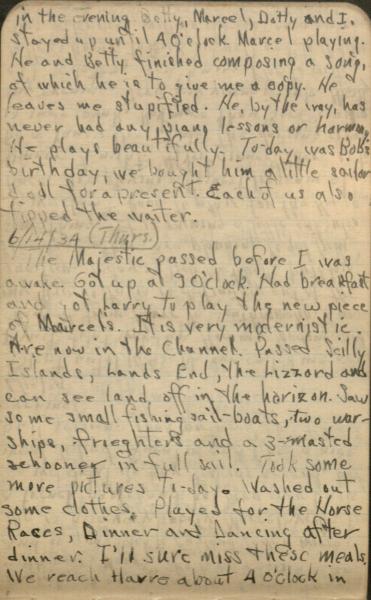 in the evening Betty, Marcel, Dotty and I.
stayed up until 4 o'clock Marcel playing.
He and Betty finished composing a song,
of which he is to give me a copy. He
leaves me stupified. He, by the way, has
never had any piano lessons or harmony
He plays beautifully. To-day was Bob's
birthday, we bought him a little sailor
doll for a present. Each of us also
tipped the waiter.
6/14/34 (Thurs.)
The Majestic passed before I was
awake. Got up at 9 o'clock. Had breakfast
and got Larry to play the new piece
of Marcel's. It is very modernistic.
Are now in the Channel. Passed Scilly
Islands, Lands End, the Lizzord and
can see land, off in the horizon. Saw
some small fishing sail-boats, two war-
ships, frieghters and a 3-masted
schooner in full sail. Took some
more pictures to-day. Washed out
some clothes. Played for the Horse
Races, Dinner and Dancing after
dinner. I'll sure miss these meals.
We reach Havre about 4 o'clock in